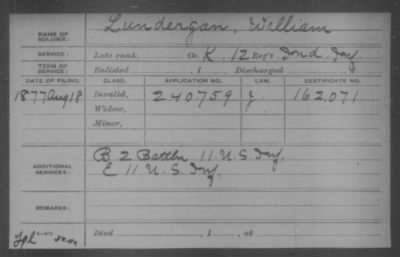 NAME OF SOLDIER: Lundergan, William
SERVICE: Late rank, Co. K, 12 Reg't Ind. Inf.
TERM OF SERVICE: Enlisted , 1 Discharged
DATE OF FILING. CLASS. APPLICATION NO. LAW. CERTIFICATE NO.
1877 Aug 18 Invalid, 240759 162,071
Widow,
Minor,
ADDITIONAL SERVICES: B 2 Battln. 11 U.S. Inf.
E 11 U.S. Inf.
REMARKS:
Died , 1 , at